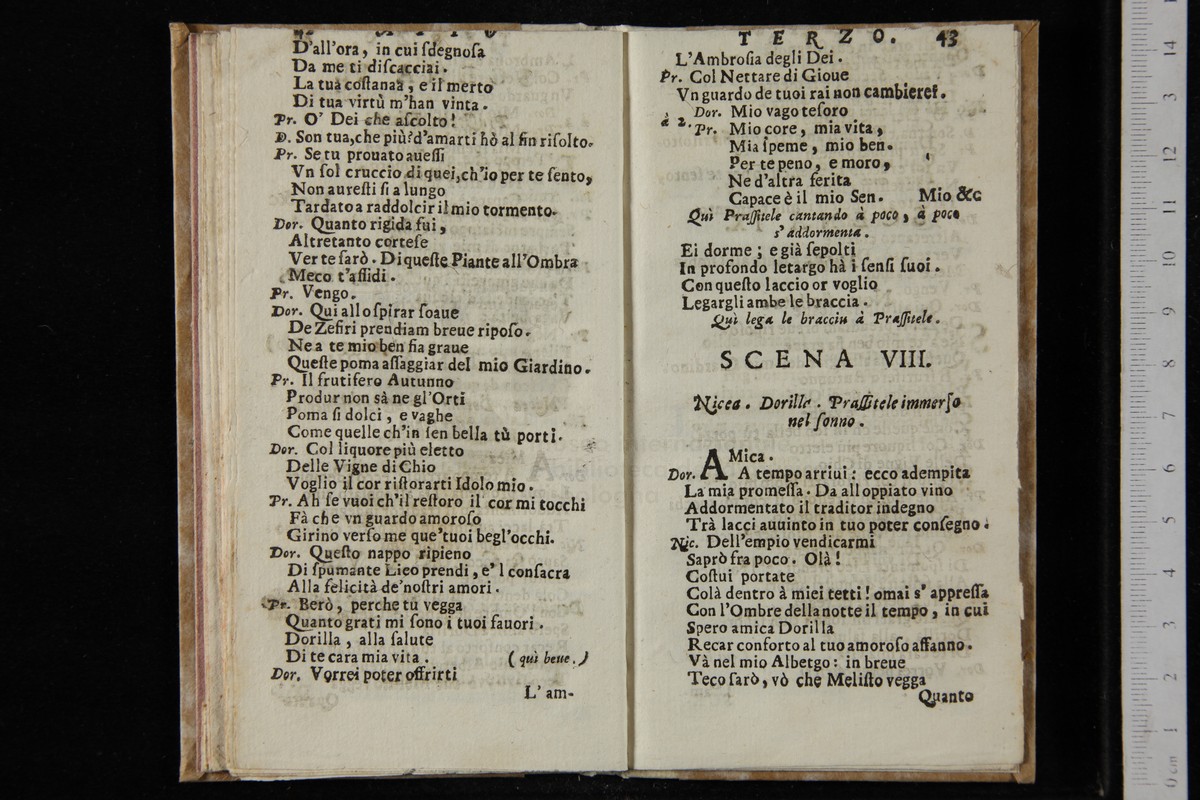 42 ATTO
D'all'ora, in cui ſdegnoſa
Da me ti diſcacciai.
La tua coſtanaa, e il merto
Di tua virtù m'han vinta.
Pr. O' Dei che aſcolto!
D. Son tua,che più?d'amarti hò al fin riſolto.
Pr. Se tu prouato aueſſi
Vn ſol cruccio di quei,ch'io per te ſento,
Non aureſti ſi a lungo
Tardato a raddolcir il mio tormento.
Dor. Quanto rigida fui,
Altretanto corteſe
Ver te ſarò. Di queſte Piante all'Ombra
Meco t'aſſidi.
Pr. Vengo.
Dor. Qui allo ſpirar ſoaue
De Zefiri prendiam breue ripoſo.
Ne a te mio ben ſia graue
Queſte poma aſſaggiar del mio Giardino.
Pr. Il frutifero Autunno
Produr non sà ne gl'Orti
Poma ſi dolci, e vaghe
Come quelle ch'in ſen bella tù porti.
Dor. Col liquore più eletto
Delle Vigne di Chio
Voglio il cor riſtorarti Idolo mio.
Pr. Ah ſe vuoi ch'il reſtoro il cor mi tocchi
Fà che vn guardo amoroſo
Girino verſo me que'tuoi begl'occhi.
Dor. Queſto nappo ripieno
Di ſpumante Lieo prendi, e'l conſacra
Alla felicità de'noſtri amori.
Pr. Berò, perche tu vegga
Quanto grati mi ſono i tuoi fauori.
Dorilla, alla ſalute
Di te cara mia vita. (quì beue.)
Dor. Vorrei poter offrirti
L'am-
TERZO. 43
L'Ambroſia degli Dei.
Pr. Col Nettare di Gioue
Vn guardo de tuoi rai non cambierei.
Dor. Mio vago teſoro
à 2. Pr. Mio core, mia vita,
Mia ſpeme, mio ben.
Per te peno, e moro,
Ne d'altra ferita
Capace è il mio Sen. Mio &c
Quì Praſſitele cantando à poco, à poco
s'addormenta.
Ei dorme; e già ſepolti
In profondo letargo hà i ſenſi ſuoi.
Con queſto laccio or voglio
Legargli ambe le braccia.
Quì lega le braccia à Praſſitele.
SCENA VIII.
Nicea. Dorilla. Praſſitele immerſo
nel ſonno.
AMica.
Dor. A tempo arriui: ecco adempita
La mia promeſſa. Da alloppiato vino
Addormentato il traditor indegno
Trà lacci auuinto in tuo poter conſegno.
Nic. Dell'empio vendicarmi
Saprò fra poco. Olà!
Coſtui portate
Colà dentro à miei tetti! omai s'appreſſa
Con l'Ombre della notte il tempo, in cui
Spero amica Dorilla
Recar conforto al tuo amoroſo affanno.
Và nel mio Albetgo: in breue
Teco ſarò, vò che Meliſto vegga
Quanto